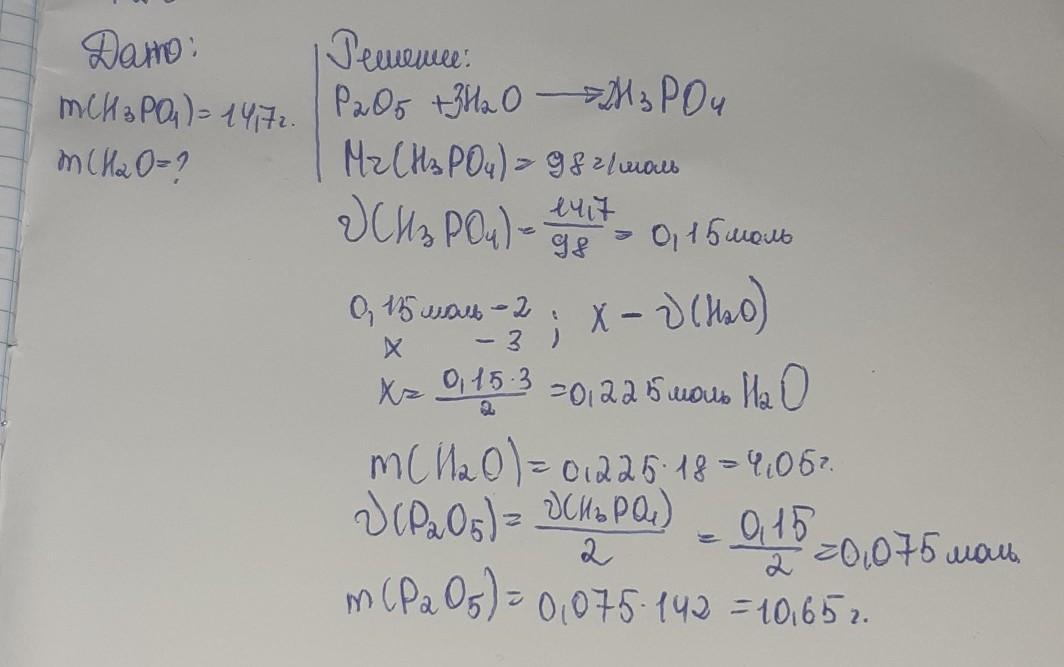 Дано:
m(H₃PO₄)=14,7г.
m(H₂O=?
Решение:
P₂O₅ +3H₂O → 2H₃PO₄
Mr(H₃PO₄)= 98 г/моль
ν(H₃PO₄)= 14,7/98 = 0,15моль
0,15моль-2 ; x - ν(H₂O)
x - 3
x= 0,15·3/2 =0,225моль H₂O
m(H₂O)=0,225·18=4,05г.
ν(P₂O₅)= ν(H₃PO₄)/2 = 0,15/2 =0,075моль
m(P₂O₅)=0,075·142=10,65г.